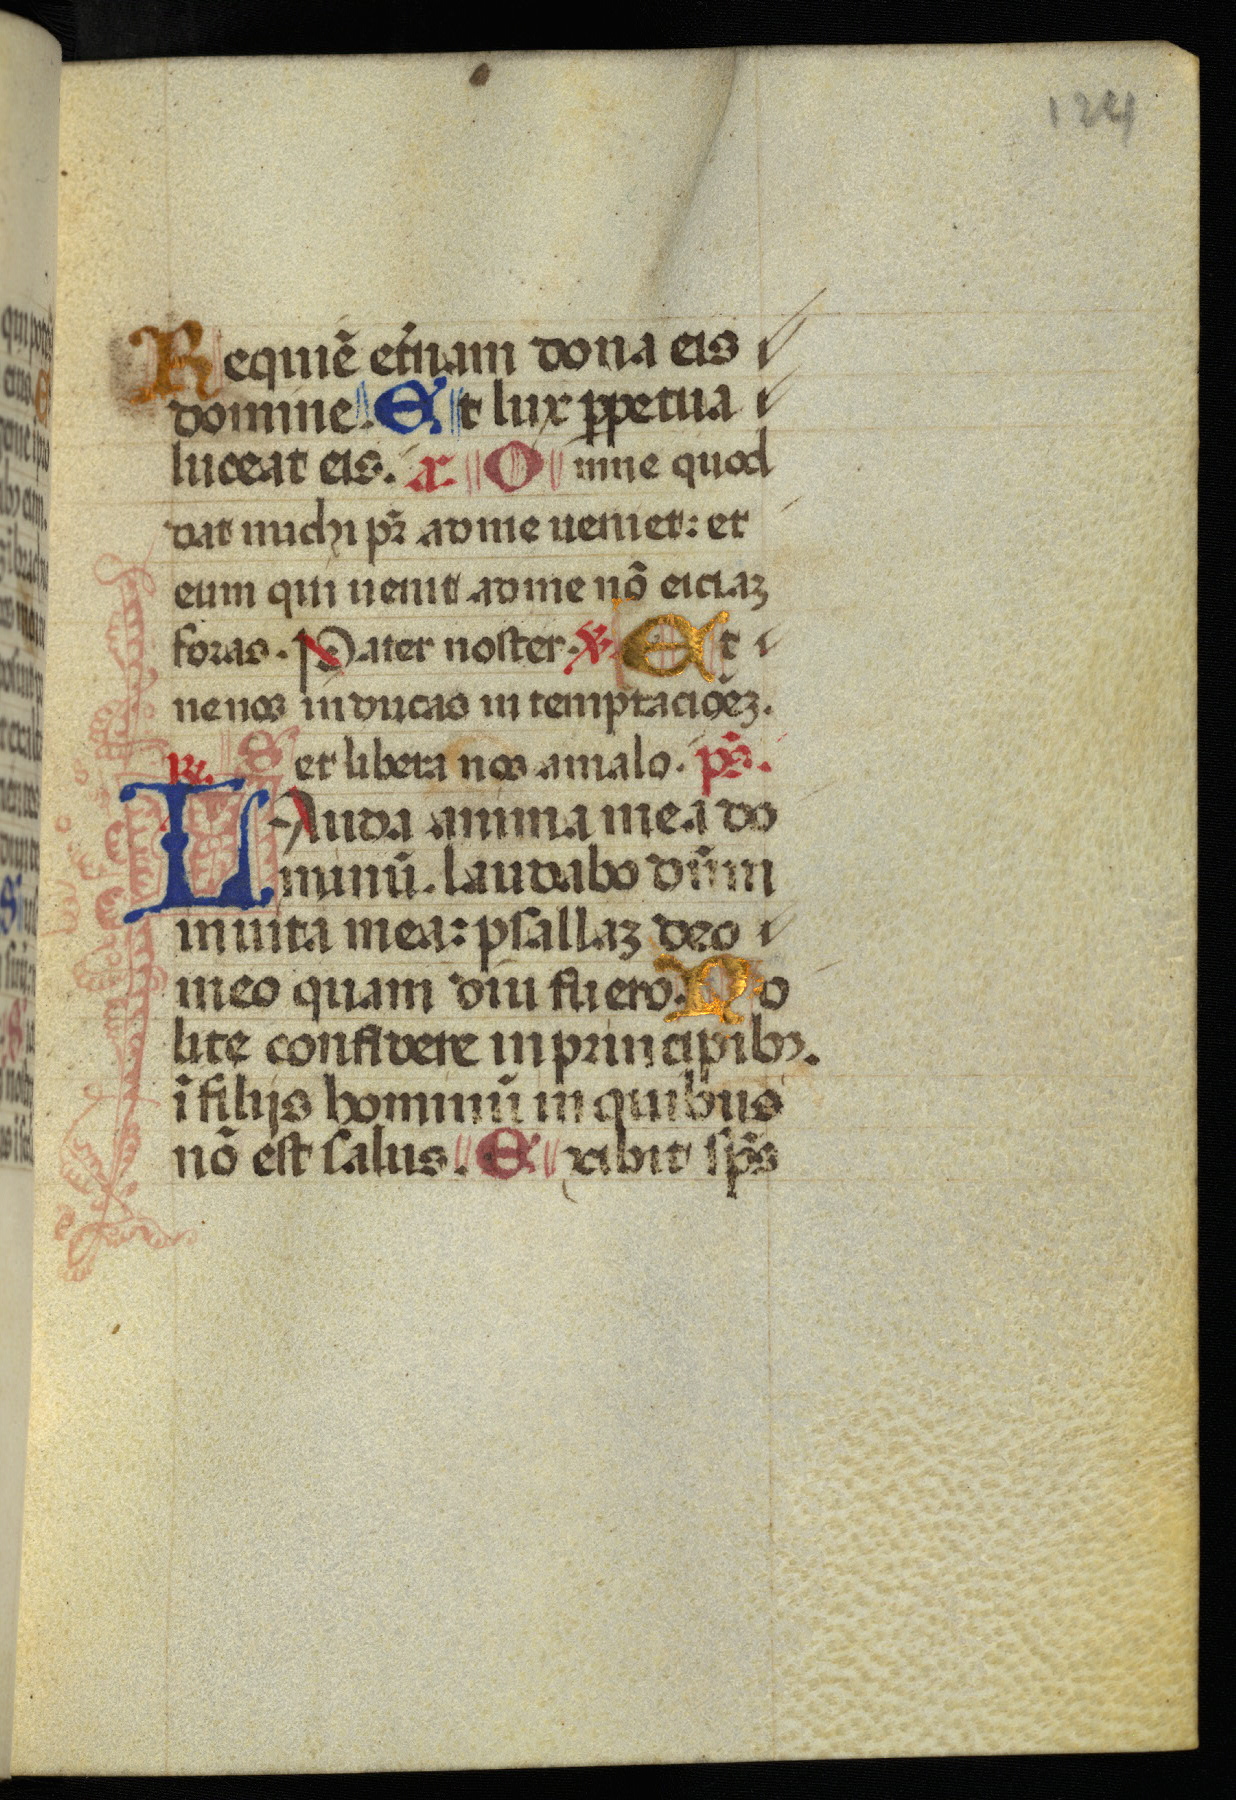 124
Requiē et̃nam dona eis
domine. Et lux ꝑpetua
luceat eis. a. Omne quod
dat michi pr̃ ad me ueniet: et
eum qui uenit ad me nō eiciaꝫ
foras. Pater noster. V. Et
ne nos inducas in temptacioēꝫ.
R. S et libera nos a malo. ps̃.
LAuda anima mea do
minū. laudabo dñm
in uita mea: psallaꝫ deo
meo quam diu fuero. No
lite confidere in principibꝫ.
ī filijs hominū in quibus
nō est salus. Exibit sp̃s